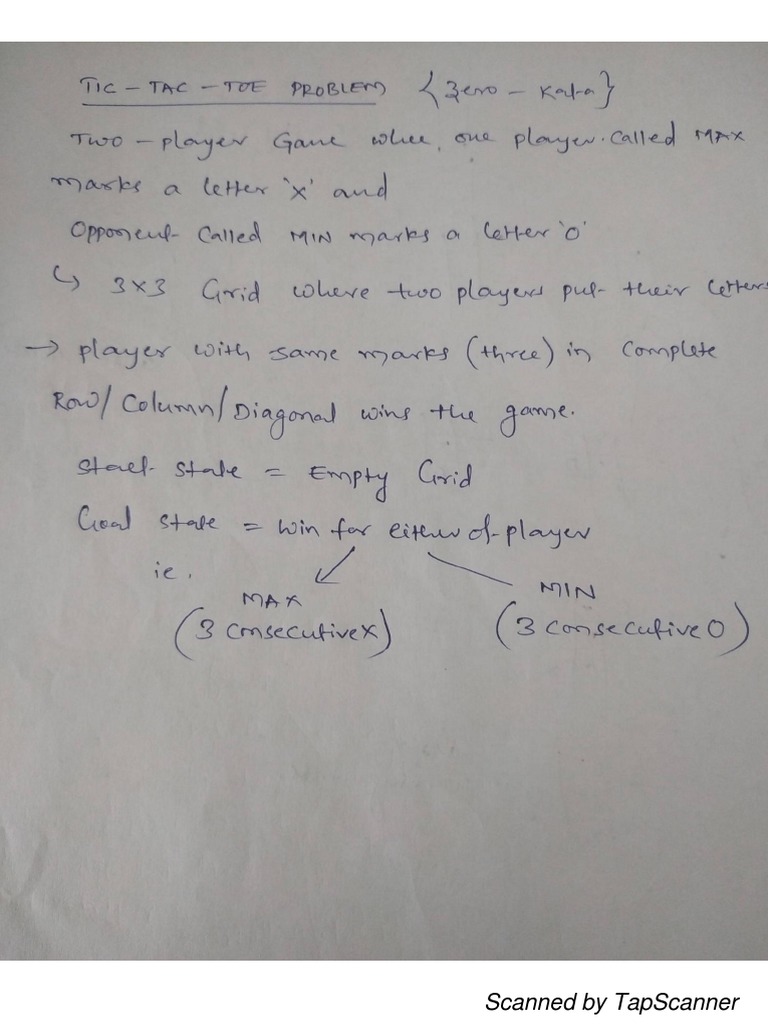 TIC - TAC - TOE PROBLEM {Zero - Kata}
Two - player Game whee, one player. Called MAX
marks a letter 'X' and
Opponent Called MIN marks a letter 'O'
↳ 3x3 Grid where two players put their letters
→ player with same marks (three) in complete
Row/Column/Diagonal wins the game.
Start State = Empty Grid
Goal State = win for either of player
ie.
MAX MIN
(3 consecutive X) (3 consecutive O)
Scanned by TapScanner